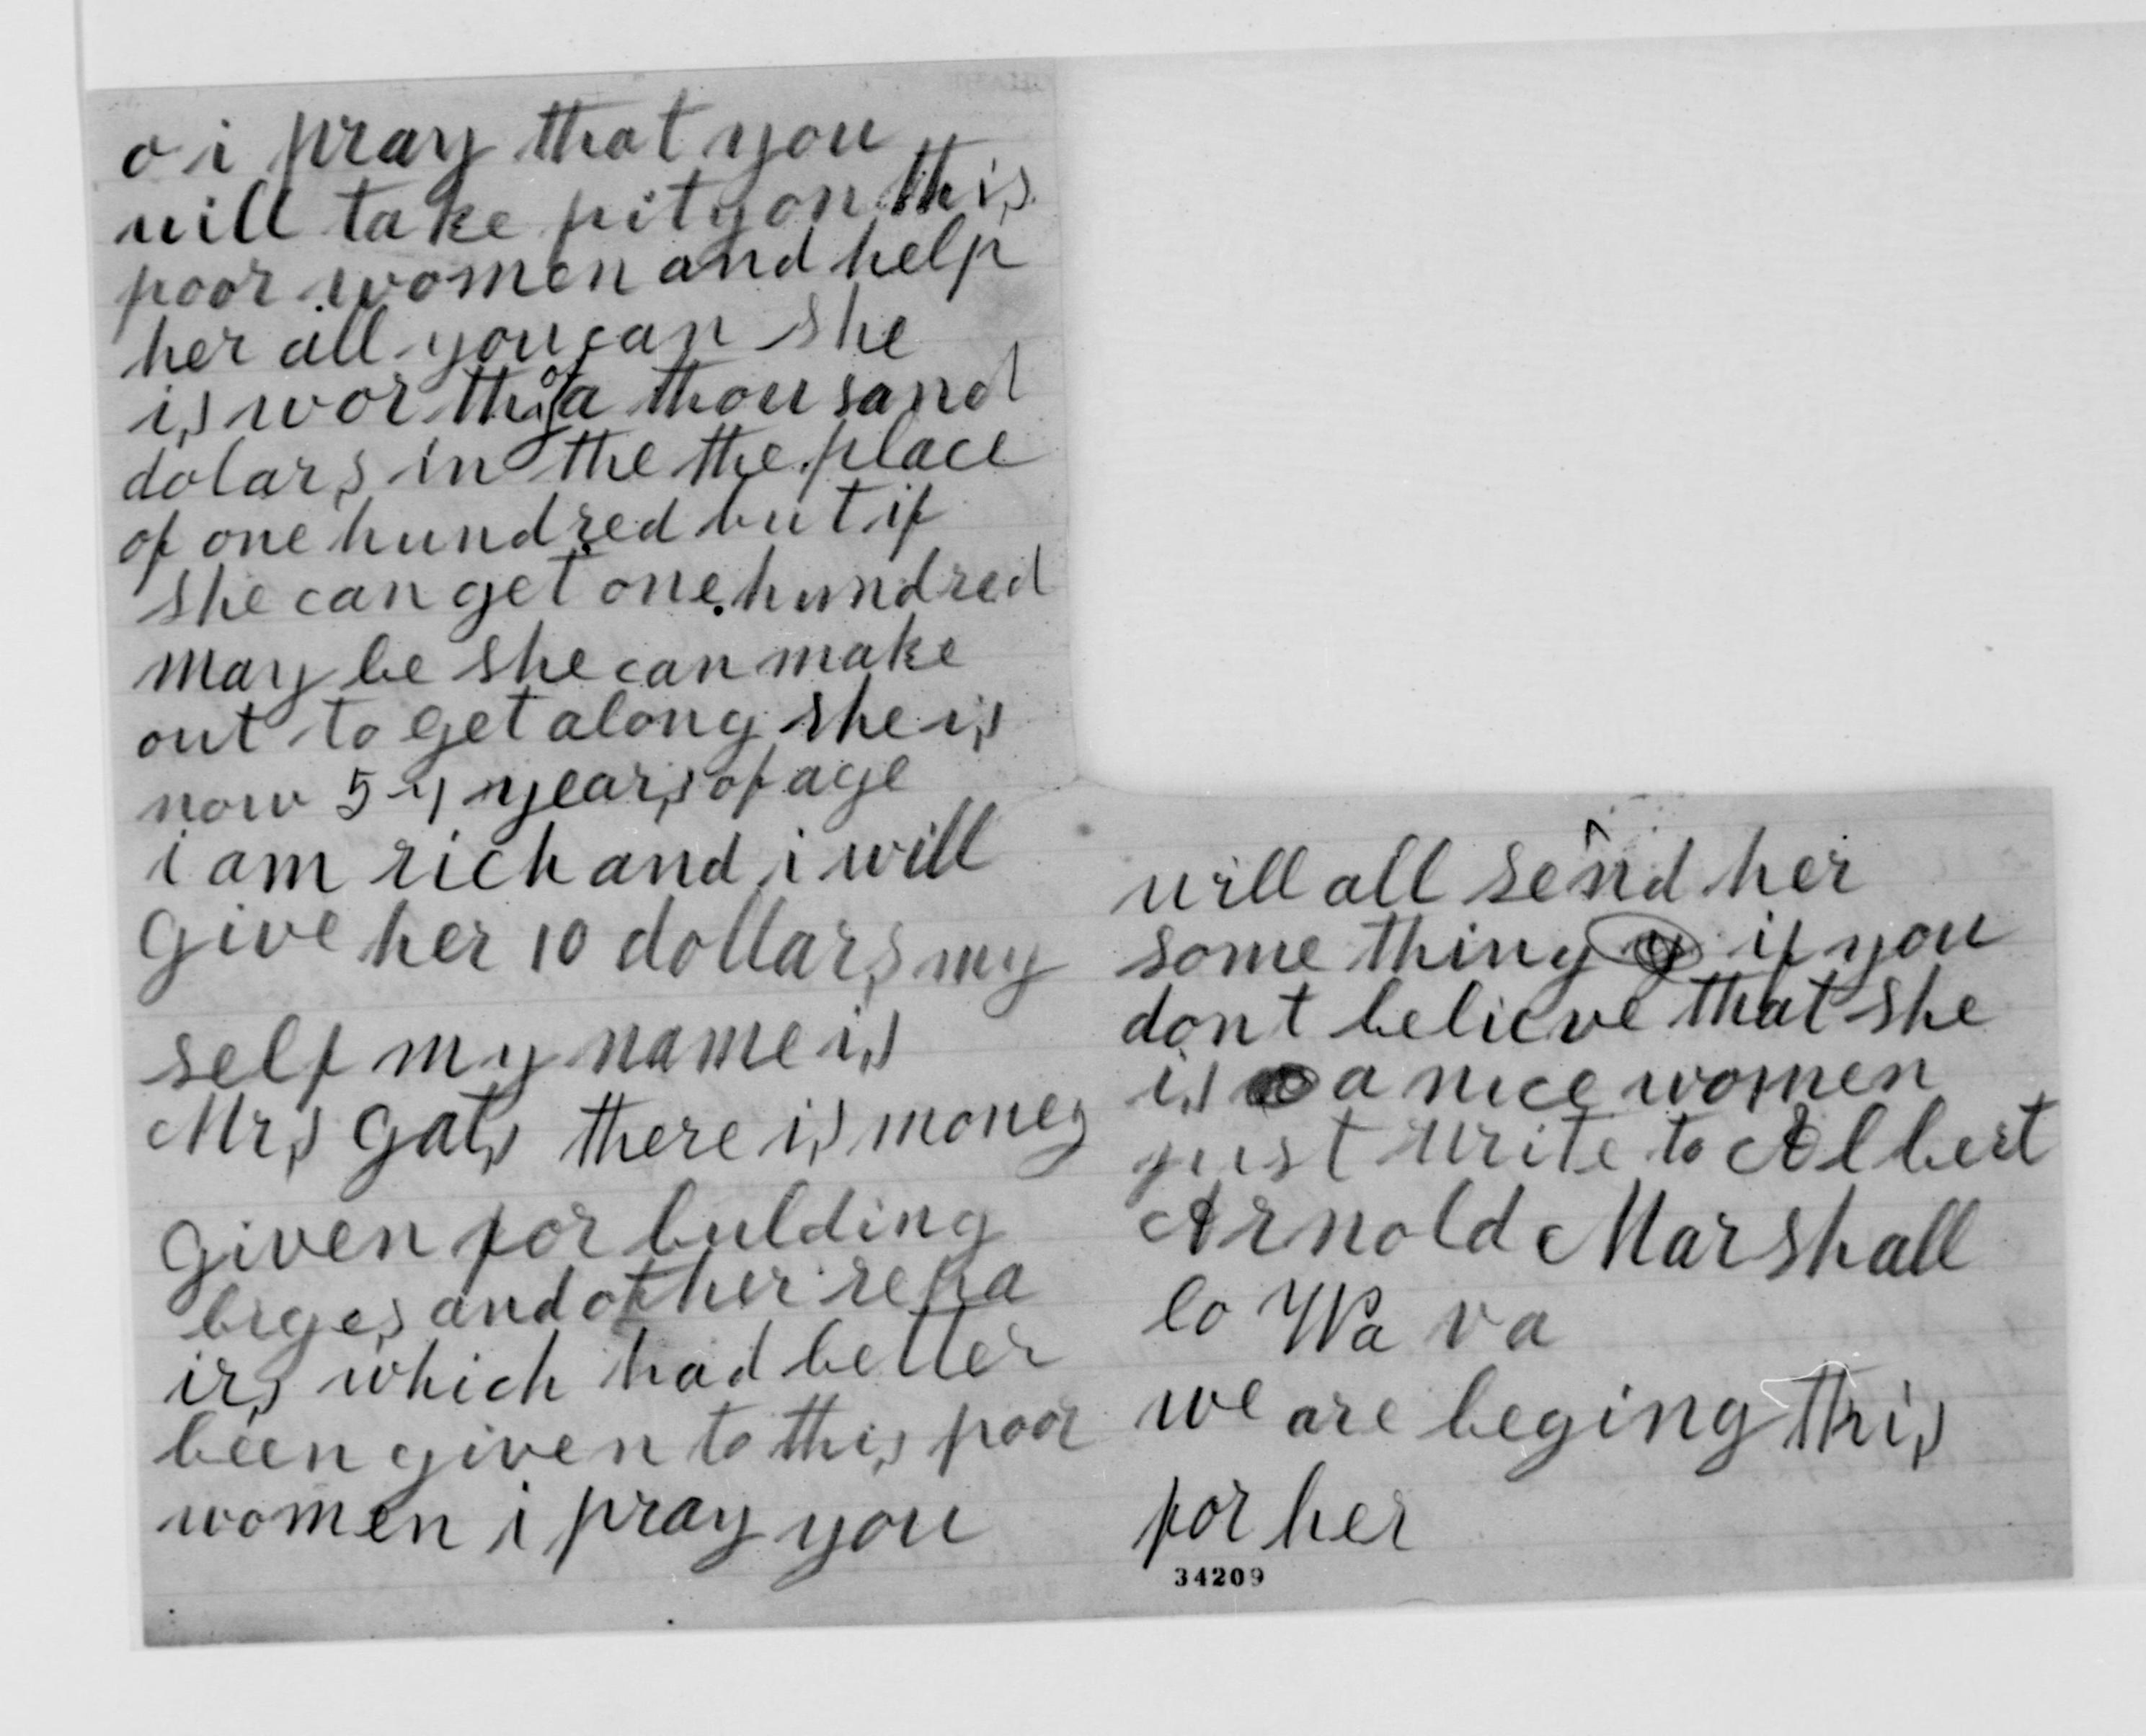 o i pray that you
will take pity on this
poor women and help
her all you can she
is worth of a thousand
dolars in the the place
of one hundred but if
she can get one hundred
may be she can make
out to get along she is
now 54 years of age
i am rich and i will
give her 10 dollars my
self my name is
Mrs Gats there is money
given for bulding
briges and other repa
irs which had better
been given to this poor
women i pray you
will all send her
some thing if you
dont believe that she
is a nice women
just write to Albert
Arnold Marshall
Co Wa va
we are beging this
for her
34209